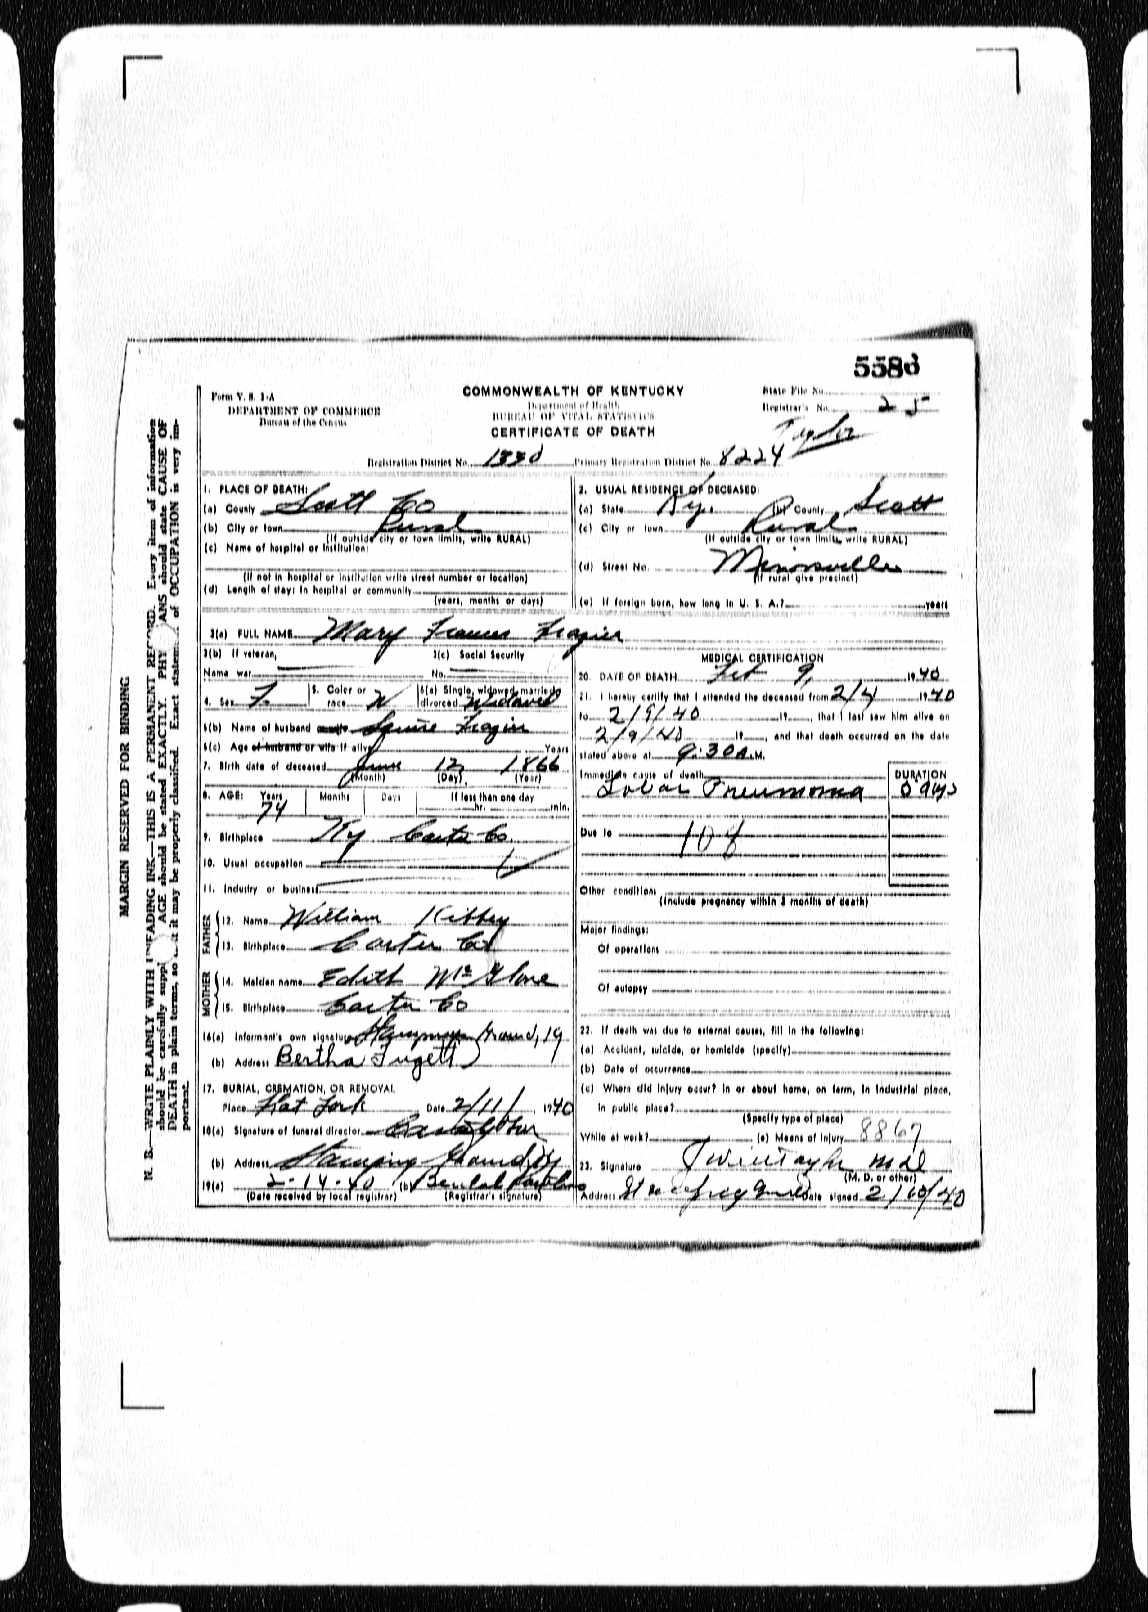 5586
Form V. S. 1-A
DEPARTMENT OF COMMERCE
Bureau of the Census
COMMONWEALTH OF KENTUCKY
Department of Health
BUREAU OF VITAL STATISTICS
CERTIFICATE OF DEATH
State File No.
Registrar's No. 25
Taylor
Registration District No. 1330 Primary Registration District No. 8224
MARGIN RESERVED FOR BINDING
N. B.—WRITE PLAINLY WITH UNFADING INK—THIS IS A PERMANENT RECORD. Every item of information
should be carefully suppl AGE should be stated EXACTLY. PHY ANS should state CAUSE OF
DEATH in plain terms, so it may be properly classified. Exact statem of OCCUPATION is very im-
portant.
1. PLACE OF DEATH:
(a) County Scott Co
(b) City or town Rural
(If outside city or town limits, write RURAL)
(c) Name of hospital or institution:
(If not in hospital or institution write street number or location)
(d) Length of stay: In hospital or community
(years, months or days)
2. USUAL RESIDENCE OF DECEASED:
(a) State Ky. (b) County Scott
(c) City or town Rural
(If outside city or town limits, write RURAL)
(d) Street No. Minorsville
(If rural give precinct)
(e) If foreign born, how long in U. S. A.? years
3(a) FULL NAME Mary Frances Frazier
3(b) If veteran, 3(c) Social Security
Name war No.
4. Sex F. 5. Color or race W 6(a) Single, widowed, married, divorced Widowed
6(b) Name of husband or wife Squire Frazier
6(c) Age of husband or wife if alive Years
7. Birth date of deceased June 12 1866
(Month) (Day) (Year)
8. AGE: Years Months Days If less than one day
74 hr. min.
9. Birthplace Ky Carter Co.
10. Usual occupation
11. Industry or business
FATHER
12. Name William Kibbey
13. Birthplace Carter Co
MOTHER
14. Maiden name Edith McGlone
15. Birthplace Carter Co
16(a) Informant's own signature Stamping Ground, Ky
(b) Address Bertha Fugett
17. BURIAL, CREMATION, OR REMOVAL
Place Flat Fork Date 2/11/ 1940
18(a) Signature of funeral director
(b) Address Stamping Ground, Ky
19(a) 2-14-40 (b) Beulah
(Date received by local registrar) (Registrar's signature)
MEDICAL CERTIFICATION
20. DATE OF DEATH Feb 9, 1940
21. I hereby certify that I attended the deceased from 2/4 1940
to 2/9/40 19 , that I last saw him alive on
2/9/40 19 , and that death occurred on the date
stated above at 9:30 A.M.
Immediate cause of death DURATION
Lobar Pneumonia 5 dys
Due to 108
Other conditions
(Include pregnancy within 3 months of death)
Major findings:
Of operations
Of autopsy
22. If death was due to external causes, fill in the following:
(a) Accident, suicide, or homicide (specify)
(b) Date of occurrence
(c) Where did injury occur? In or about home, on farm, in industrial place,
in public place?
(Specify type of place)
While at work? (e) Means of injury 8867
23. Signature Taylor M D
(M. D. or other)
Address Stamping Ground Date signed 2/10/40